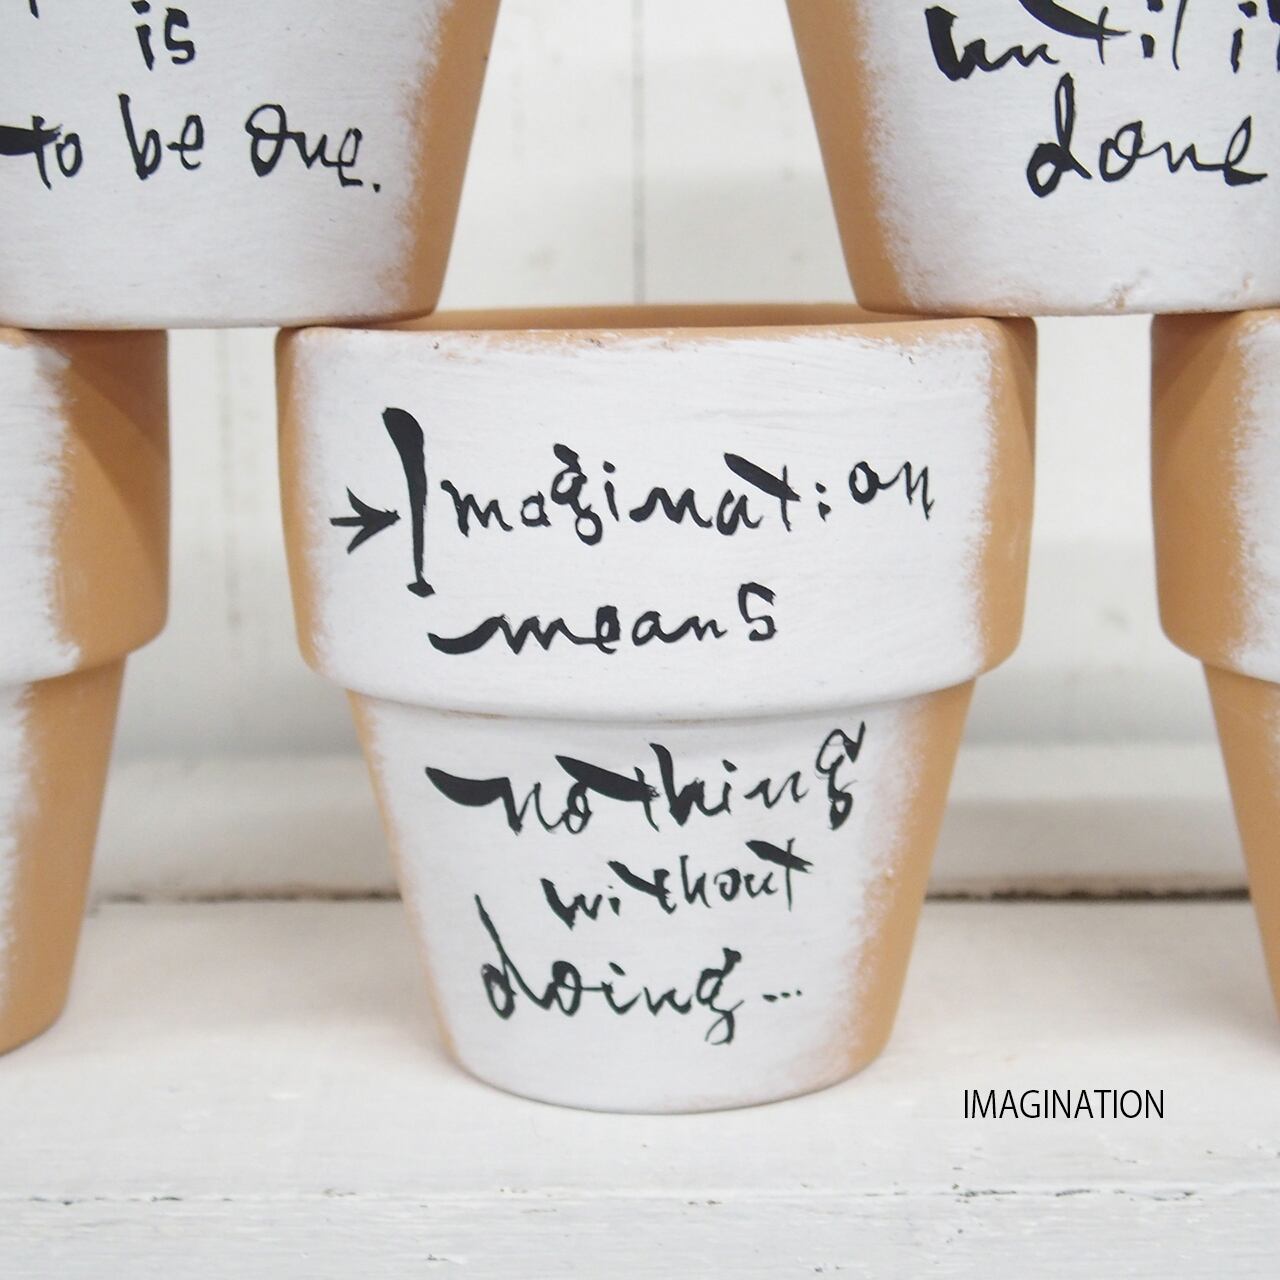 is
to be one.
until it
done
Imagination
means
nothing
without
doing...
IMAGINATION